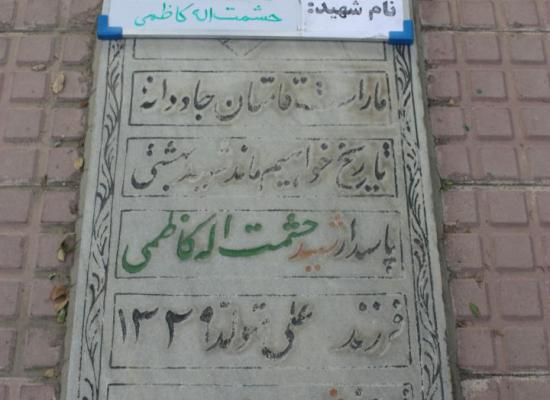 نام شهید:
حشمت اله کاظمی
ما راست قامتان جاودانه
تاریخ خواهیم ماند شهید بهشتی
پاسدار شهید حشمت اله کاظمی
فرزند علی تولد ۱۳۲۹